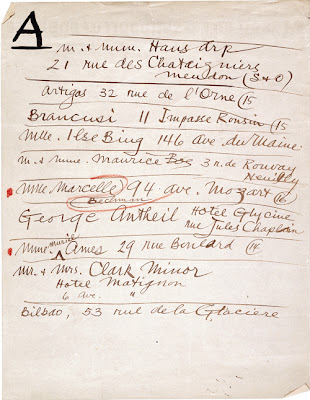 A
M. & Mme. Hans Arp
21 rue des Chataigniers
Meudon (S & O)
Artigas 32 rue de l'Orne (15
Brancusi 11 Impasse Ronsin (15
Mlle. Ilse Bing 146 ave. du Maine
M. & Mme. Maurice 3 r. de Rouvray
Neuilly
Mlle Marcelle 94 ave. Mozart (16
Beckman
George Antheil Hotel Glycine
Rue Jules Chaplain
Mme. Muriel Ames 29 rue Boulard (14
Mr. & Mrs. Clark Minor
Hotel Matignon
6 ave. "
Bilbao, 53 rue de la Glaciere